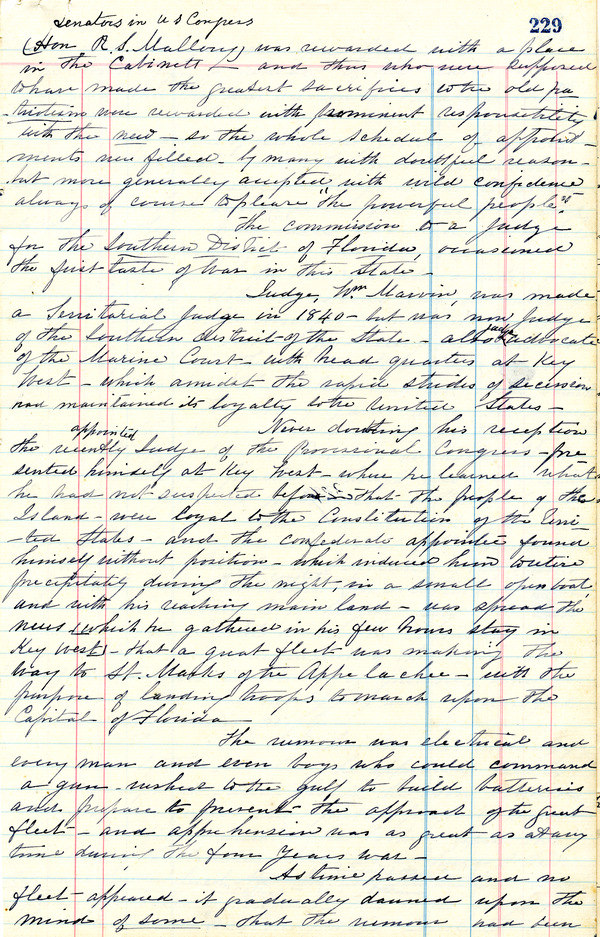 senators in U S Congress
229
(Hon. R. S. Mallory) was rewarded with a place
in the Cabinett - and thus who were supposed
to have made the greatest sacrifices to the old pa
triotism were rewarded with prominent responsibility
with the new - so the whole schedul of appoint
ments were filled by many with doubtful reason -
but more generally accepted with wild confidence
always of course to please "the powerful people"
The commission to a Judge
for the Southern District of Florida, occasioned
the first taste of War in this State -
Judge, Wm Marvin, was made
a Territorial Judge in 1840 - but was now Judge
of the Southern district of the State - also Judge advocate
of the Marine Court - with head quarters at Key
West - which amidst the rapid strides of secession
had maintained its loyalty to the United States -
Never doubting his reception
the recently appointed Judge of the Provisional Congress - pre
sented himself at Key West - where he learned what
he had not suspected before - that the people of the
Island - were loyal to the Constitution of the Uni
-ted States - and the confederate appointee found
himself without position - which induced him to retire
precipitately during the night, in a small open boat,
and with his reaching main land - was spread the
news (which he gathered in his few hours stay in
Key West) - that a great fleet was making the
way to St. Marks of the Appelachee - with the
purpose of landing troops to march upon the
Capital of Florida
The rumour was electrical and
every man and even boys who could command
a gun - rushed to the gulf to build batteries
and prepare to prevent the approach of the great
fleet - and apprehension was as great as at any
time during the four Years war -
As time passed and no
fleet appeared - it gradually dawned upon the
mind of some - that the rumour had been